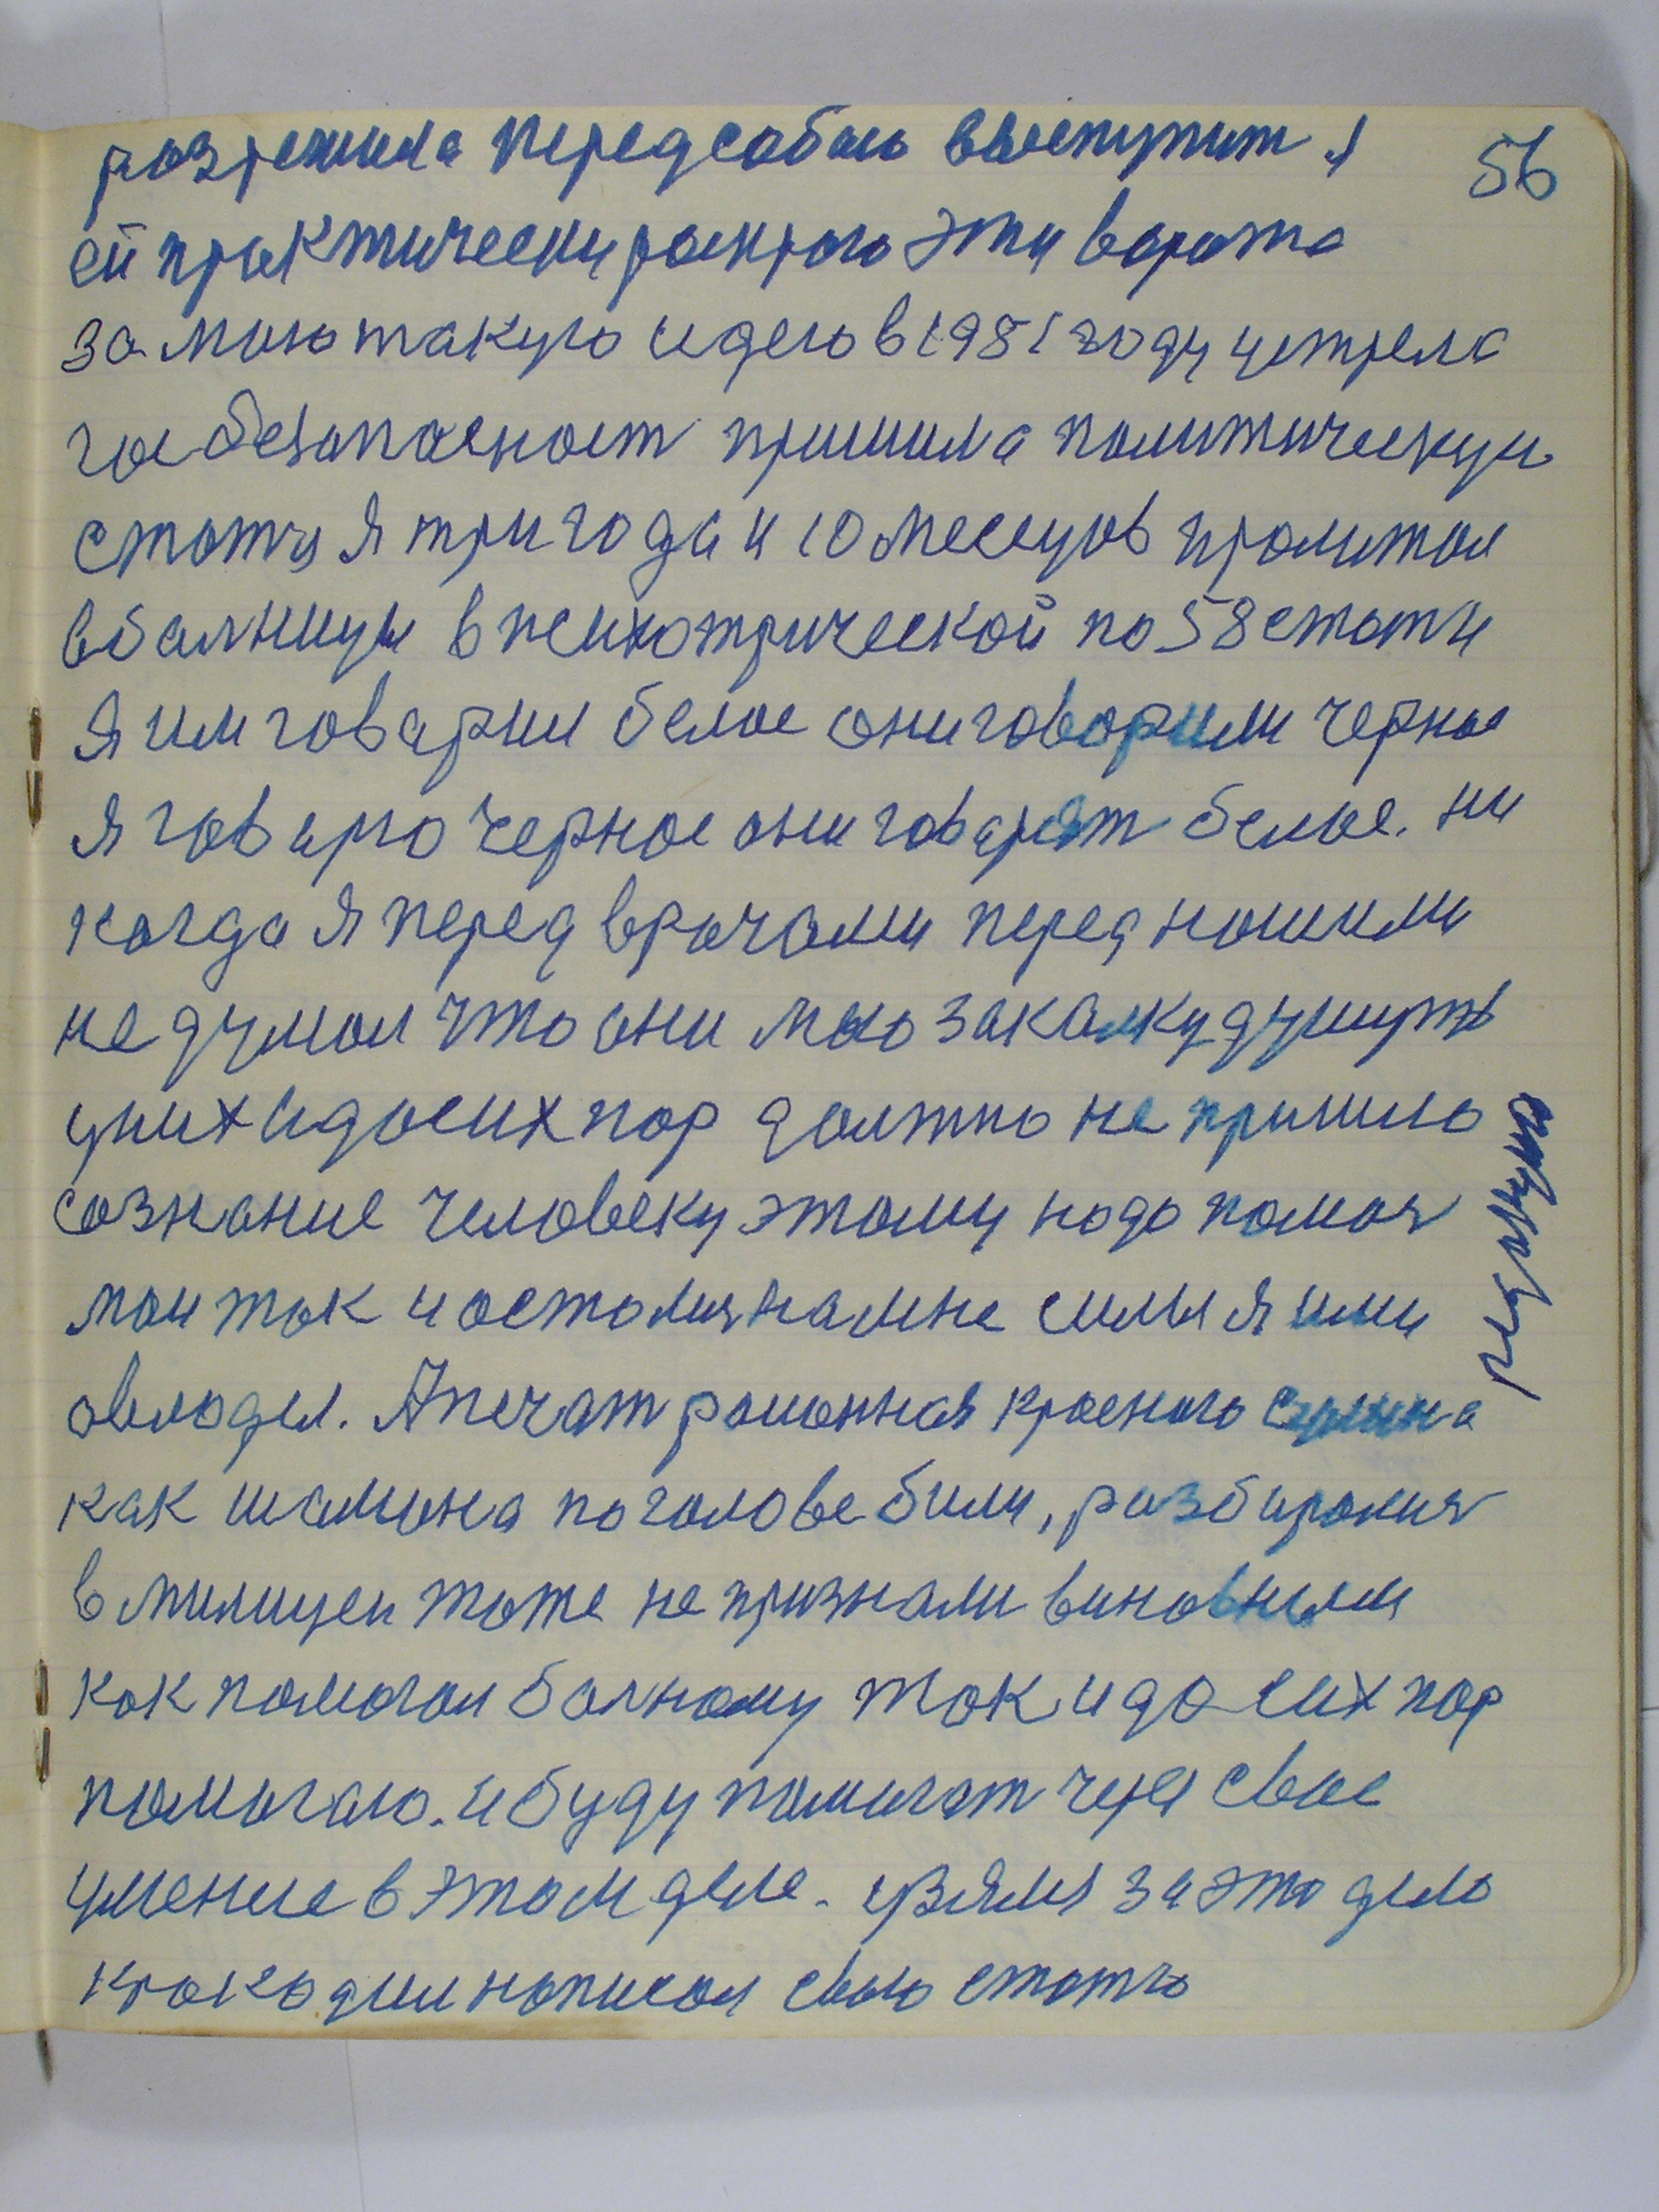 56
разрешила перед собаю выступит я
ей практически раскрою эти варота
за маю такую идею в 1981 году устрела
гос безапасност пришила политическую
статю я три года и 10 месецов промитал
в балницы в психотрической по 58 стати
я им говарил белое они говорили черное
я говарю черное они говарят белое. ни
когда я перед врачами перед нашими
не думал что они маю закалку думуть
у них и до сих пор должно не пришло
сознание человеку этому надо памоч
маи так и осталися на мне силы я ими
овлодел. А печат районная красного
как шамана по голове били, разбиралися
в милицеи тоже не признали виновным
как памогал балному так и до сих пор
памогаю. и буду памогат через свое
умение в этом деле. взялся за это дело
кракодил написал свою статю